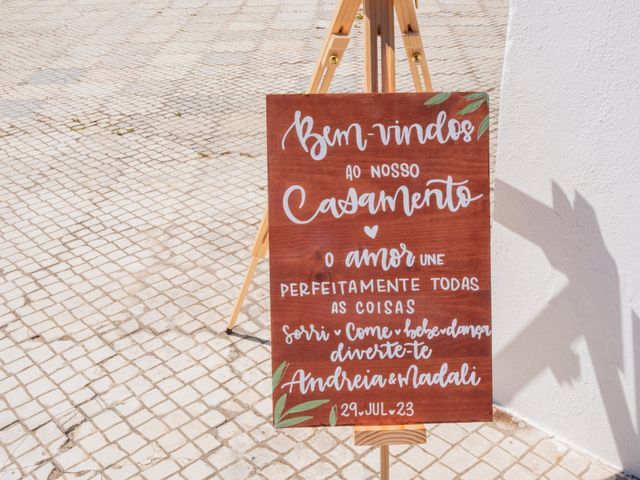 Bem-vindos
AO NOSSO
Casamento
O amor UNE
PERFEITAMENTE TODAS
AS COISAS
Sorri ♥ Come ♥ bebe ♥ dança
diverte-te
Andreia & Madali
29 ♥ JUL ♥ 23